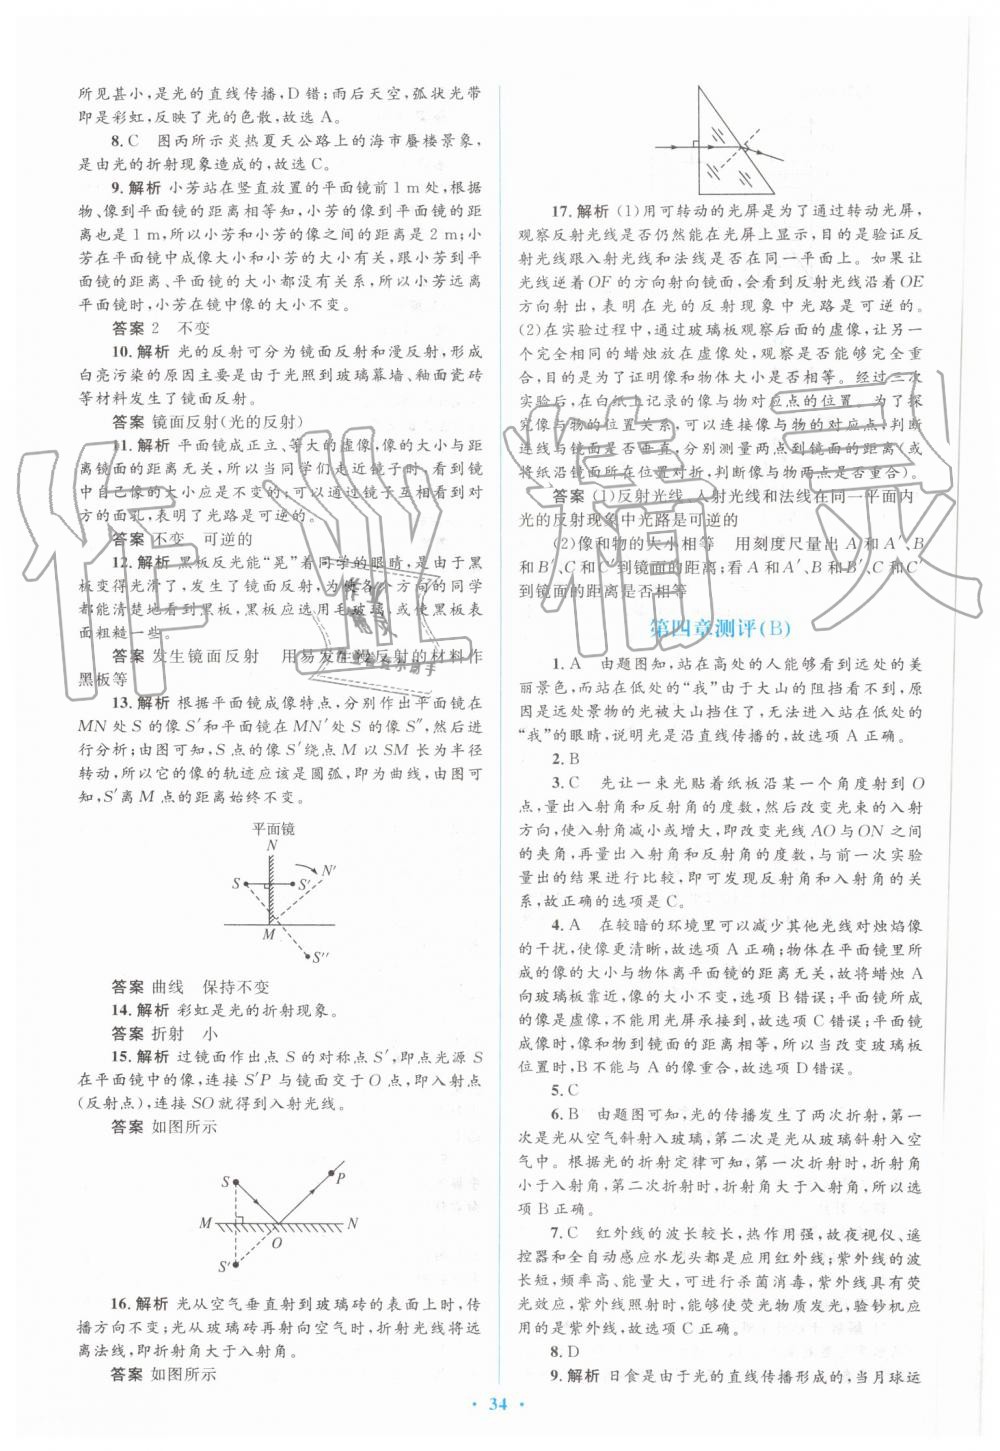 所见甚小,是光的直线传播,D错;雨后天空,弧状光带
即是彩虹,反映了光的色散,故选A。
8.C 图丙所示炎热夏天公路上的海市蜃楼景象,
是由光的折射现象造成的,故选C。
9.解析 小芳站在竖直放置的平面镜前1 m处,根据
物、像到平面镜的距离相等知,小芳的像到平面镜的距离
也是1 m,所以小芳和小芳的像之间的距离是2 m;小
芳在平面镜中成像大小和小芳的大小有关,跟小芳到平
面镜的距离、平面镜的大小都没有关系,所以小芳远离
平面镜时,小芳在镜中像的大小不变。
答案 2 不变
10.解析 光的反射可分为镜面反射和漫反射,形成
白亮污染的原因主要是由于光照到玻璃幕墙、釉面瓷砖
等材料发生了镜面反射。
答案 镜面反射(光的反射)
11.解析 平面镜成正立、等大的虚像,像的大小与距
离镜面的距离无关,所以当同学们走近镜子时,看到镜
中自己像的大小应是不变的;通过镜子互相看到对
方的面孔,表明了光路是可逆的。
答案 不变 可逆的
12.解析 黑板反光能“晃”着同学的眼睛,是由于黑
板变得光滑了,发生了镜面反射,为使各个方向的同学
都能清楚地看到黑板,黑板应选用毛玻璃,或使黑板表
面粗糙一些。
答案 发生镜面反射 用易发生漫反射的材料作
黑板等
13.解析 根据平面镜成像特点,分别作出平面镜在
MN处S的像S′和平面镜在MN′处S的像S″,然后进
行分析;由图可知,S点的像S′绕点M以SM长为半径
转动,所以它的像的轨迹应该是圆弧,即为曲线,由图可
知,S′离M点的距离始终不变。
平面镜
N
N′
S
S′
M
S′′
答案 曲线 保持不变
14.解析 彩虹是光的折射现象。
答案 折射 小
15.解析 过镜面作出点S的对称点S′,即点光源S
在平面镜中的像,连接S′P与镜面交于O点,即入射点
(反射点),连接SO就得到入射光线。
答案 如图所示
S
P
M
N
O
S′
16.解析 光从空气垂直射到玻璃砖的表面上时,传
播方向不变;光从玻璃砖再射向空气时,折射光线将远
离法线,即折射角大于入射角。
答案 如图所示
17.解析 (1)用可转动的光屏是为了通过转动光屏,
观察反射光线是否仍然能在光屏上显示,目的是验证反
射光线跟入射光线和法线是否在同一平面上。如果让
光线逆着OF的方向射向镜面,会看到反射光线沿着OE
方向射出,表明在光的反射现象中光路是可逆的。
(2)在实验过程中,通过玻璃板观察后面的虚像,让另一
个完全相同的蜡烛放在虚像处,观察是否能够完全重
合,目的是为了证明像和物体大小是否相等。经过三次
实验后,在白纸上记录的像与物对应点的位置。为了探
究像与物的位置关系,可以连接像与物的对应点,判断
连线与镜面是否垂直,分别测量两点到镜面的距离(或
将纸沿镜面所在位置对折,判断像与物两点是否重合)。
答案 (1)反射光线、入射光线和法线在同一平面内
光的反射现象中光路是可逆的
(2)像和物的大小相等 用刻度尺量出A和A′、B
和B′、C和C′到镜面的距离;看A和A′、B和B′、C和C′
到镜面的距离是否相等
第四章测评(B)
1.A 由题图知,站在高处的人能够看到远处的美
丽景色,而站在低处的“我”由于大山的阻挡看不到,原
因是远处景物的光被大山挡住了,无法进入站在低处的
“我”的眼睛,说明光是沿直线传播的,故选项A正确。
2.B
3.C 先让一束光贴着纸板沿某一个角度射到O
点,量出入射角和反射角的度数,然后改变光束的入射
方向,使入射角减小或增大,即改变光线AO与ON之间
的夹角,再量出入射角和反射角的度数,与前一次实验
量出的结果进行比较,即可发现反射角和入射角的关
系,故正确的选项是C。
4.A 在较暗的环境里可以减少其他光线对烛焰像
的干扰,使像更清晰,故选项A正确;物体在平面镜里所
成的像的大小与物体离平面镜的距离无关,故将蜡烛A
向玻璃板靠近,像的大小不变,选项B错误;平面镜所成
的像是虚像,不能用光屏承接到,故选项C错误;平面镜
成像时,像和物到镜面的距离相等,所以当改变玻璃板
位置时,B不能与A的像重合,故选项D错误。
5.C
6.B 由题图可知,光的传播发生了两次折射,第一
次是光从空气斜射入玻璃,第二次是光从玻璃斜射入空
气中。根据光的折射定律可知,第一次折射时,折射角
小于入射角,第二次折射时,折射角大于入射角,所以选
项B正确。
7.C 红外线的波长较长,热作用强,故夜视仪、遥
控器和全自动感应水龙头都是应用红外线;紫外线的波
长短,频率高、能量大,可进行杀菌消毒,紫外线具有荧
光效应,紫外线照射时,能够使荧光物质发光,验钞机应
用的是紫外线,故选项C正确。
8.D
9.解析 日食是由于光的直线传播形成的,当月球运
34
作业精灵